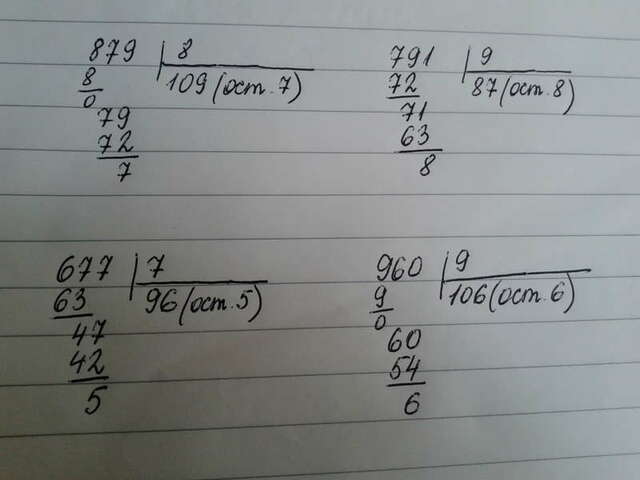 879 | 8
8 109 (ост. 7)
0
79
72
7
791 | 9
72 87 (ост. 8)
71
63
8
677 | 7
63 96 (ост. 5)
47
42
5
960 | 9
9 106 (ост. 6)
0
60
54
6